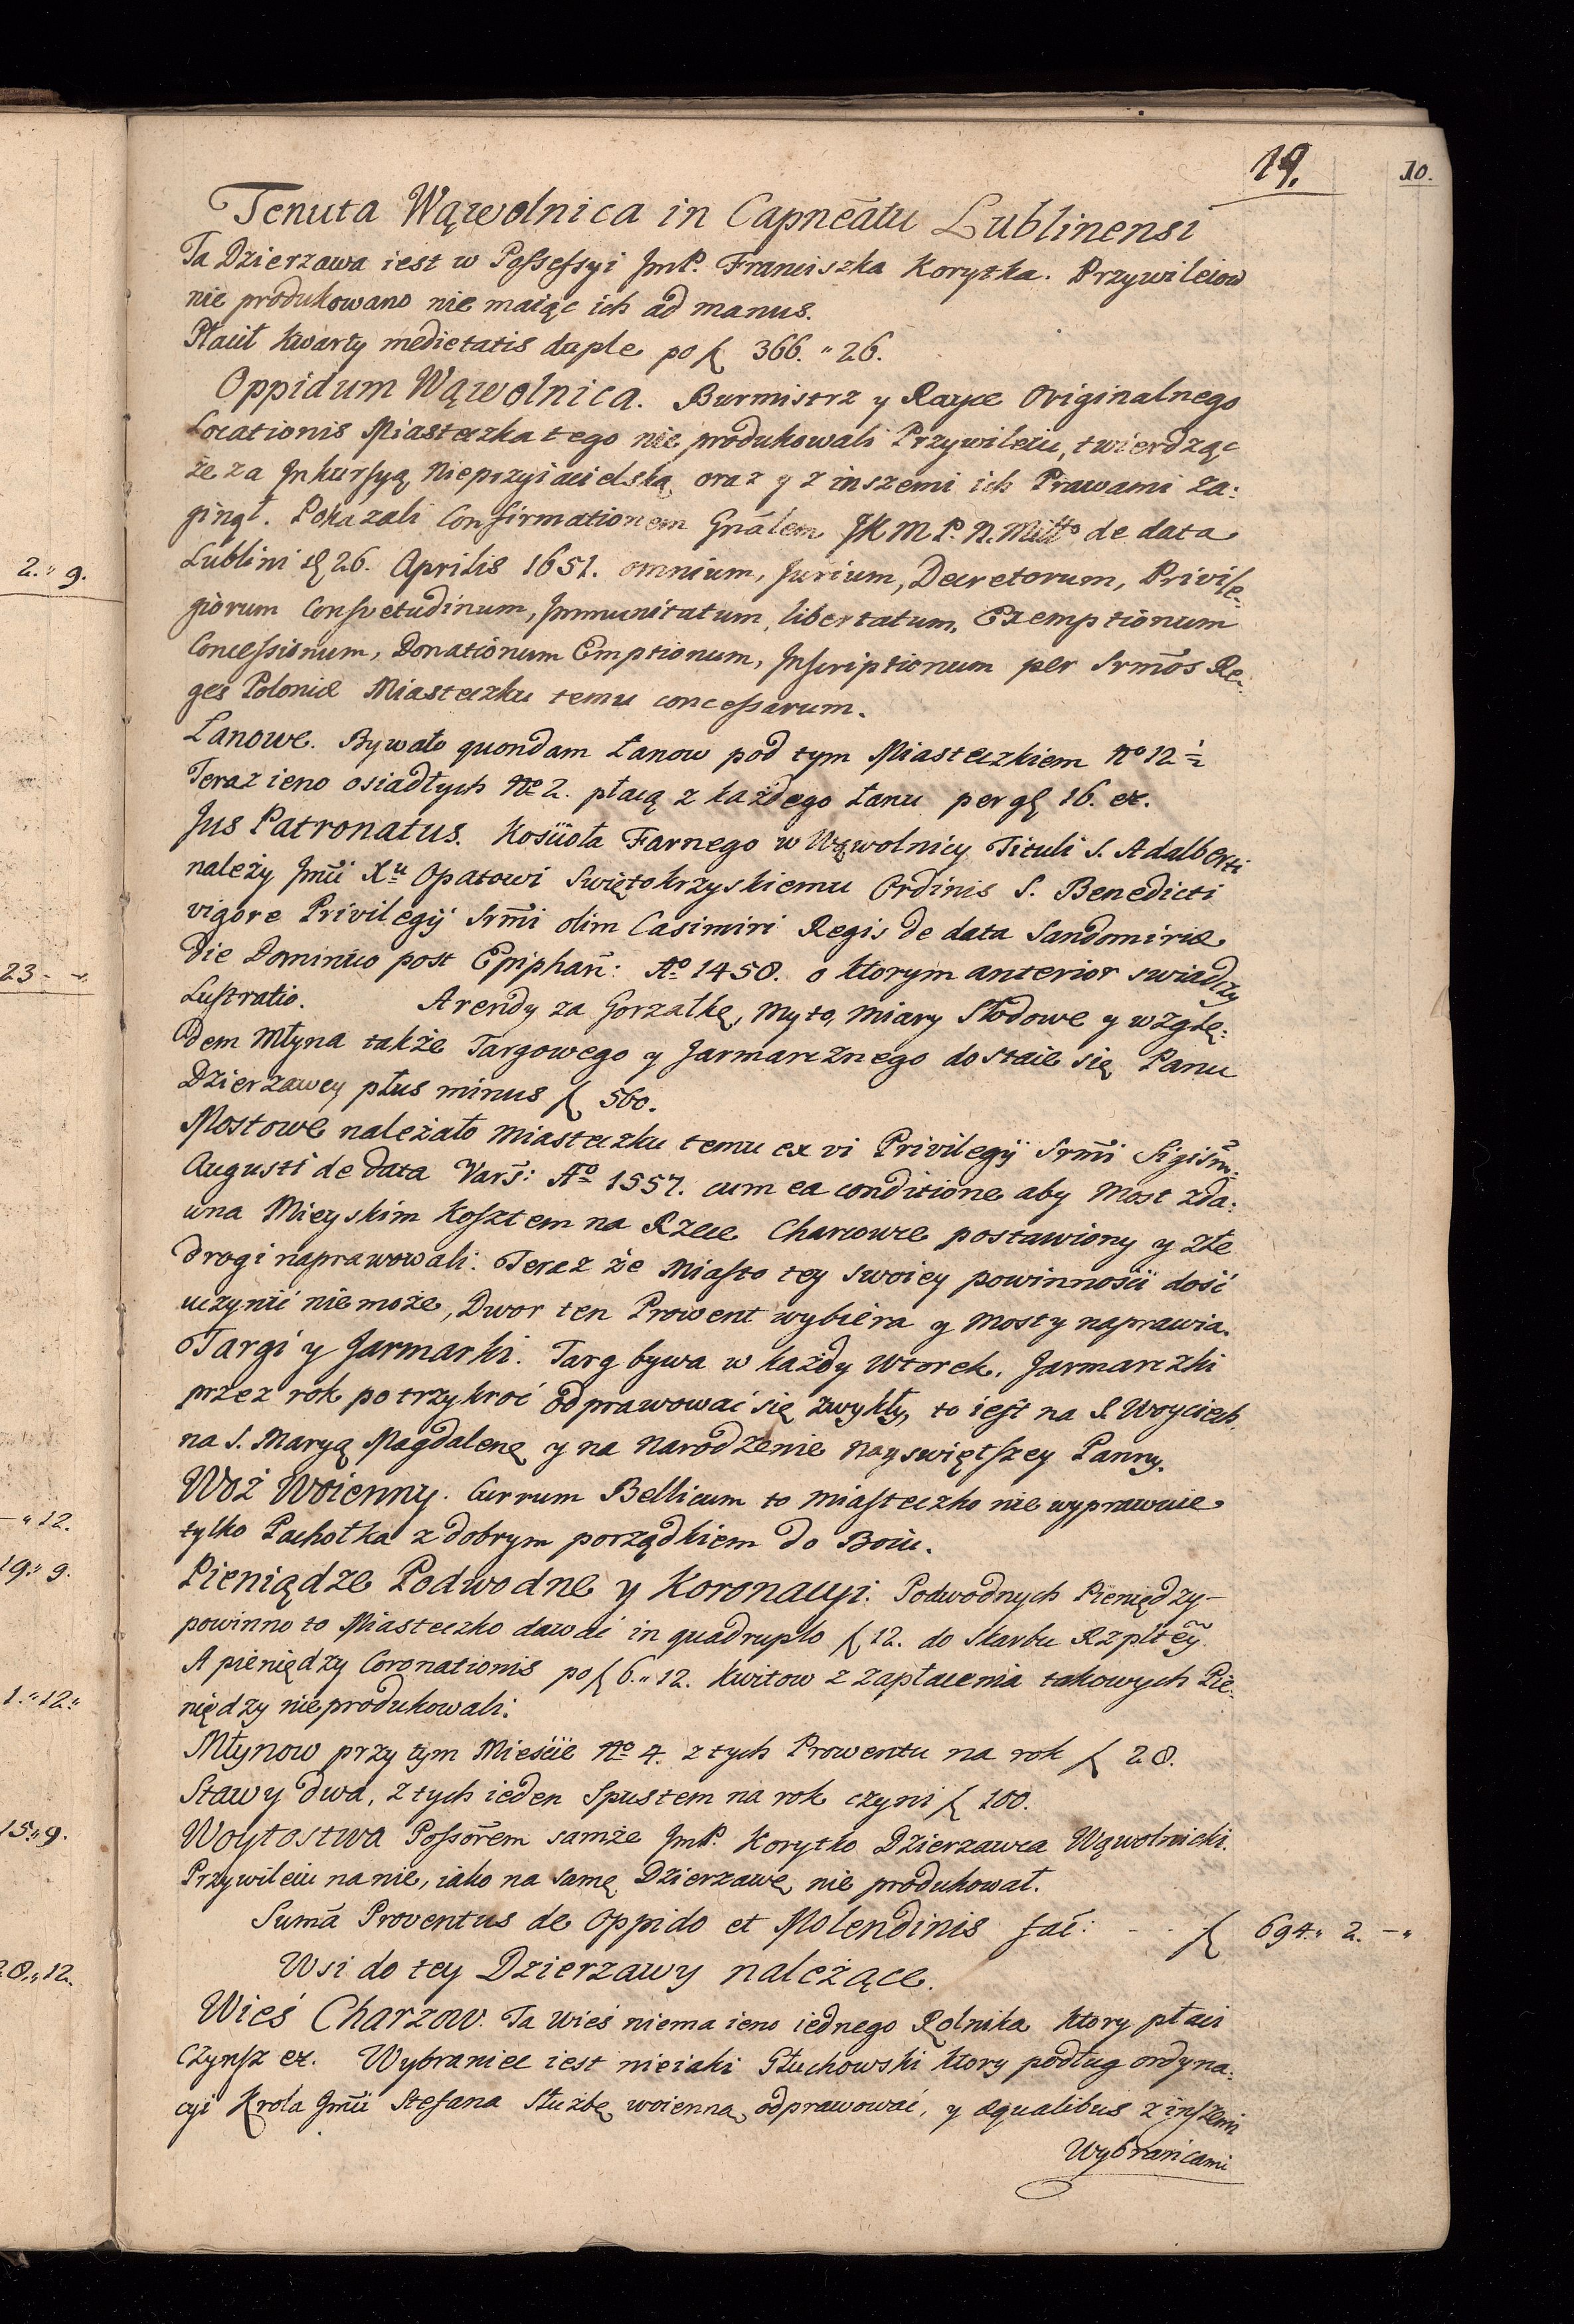 19.
10.
Tenuta Wąwolnica in Capneātu Lublinensi
Ta Dzierzawa iest w Possessyi JmP. Franciszka Korytka. Przywileiow
nie produkowano nie maiąc ich ad manus.
Płacił kwarty medietatis duple po ƒ 366. " 26.
Oppidum Wąwolnica. Burmistrz y Rayce Originalnego
Locationis Miasteczka tego nie produkowali Przywileiu, twierdząc
że za Jnkursyą Nieprzyiacielską oraz y z inszemi ich Prawami za:
ginął. Pokazali Confirmationem Gnālem JKMP. N. Mittº de data
Lublini 26. Aprilis 1651. omnium, Jurium, Decretorum, Privile-
giorum Consvetudinum, Jmmunitatum, libertatum, Exemptionum
Concessionum, Donationum Emptionum, Jnscriptionum per Srmōs Re-
ges Polonie Miasteczku temu concessarum.
Łanowe. Bywało quondam Łanow pod tym Miasteczkiem Nº 12 ½
Teraz ieno osiadłych Nº 2. płacą z każdego Łanu per 16. ex.
Jus Patronatus. Kościoła Farnego w Wąwolnicy Tituli S. Adalberti
należy Jmći Xu Opatowi Swiętokrzyskiemu Ordinis S. Benedicti
vigore Privilegij Srm̄i olim Casimiri Regis de data Sandomirie
die Dominico post Epiphan̄: Aº 1458. o ktorym anterior swiadczy
Lustratio. Arendy za Gorzałkę, Myto, Miary Słodowe y wzglę:
dem Młyna także Targowego y Jarmarcznego dostaie się Panu
Dzierzawcy plus minus ƒ 560.
Mostowe należało Miasteczku temu ex vi Privilegij Srm̄i Sigism̄:
Augusti de data Vars̄: Aº 1557. cum ea conditione aby Most zda:
wna Mieyskim Kosztem na Rzece Charzowce postawiony y złe
drogi naprawowali: Teraz że Miasto tey swoiey powinności dość
uczynić nie może, Dwor ten Prowent wybiera y Mosty naprawia.
Targi y Jarmarki. Targ bywa w każdy Wtorek. Jarmarczki
przez rok po trzykroć odprawować się zwykły, to iest na S. Woyciech,
na S. Maryą Magdalenę y na Narodzenie Nayswiętszey Panny.
Woz Woienny. Currum Bellicum to Miasteczko nie wyprawuie
tylko Pachołka z dobrym porządkiem do Boiu.
Pieniądze Podwodne y Koronacyi: Podwodnych Pieniędzy-
powinno to Miasteczko dawać in quadruplo ƒ 12. do Skarbu Rzpltēy.
A pieniędzy Coronationis po ƒ 6." 12. Kwitow z zapłacenia takowych Pie-
niędzy nieprodukowali.
Młynow przy tym Mieście Nº 4. z tych Prowentu na rok ƒ 28.
Stawy dwa, z tych ieden Spustem na rok czyni ƒ 100.
Woytostwa Possōrem samże JmP. Korytko Dzierzawca Wąwolnicki.
Przywileiu na nie, iako na samę Dzierzawę nie produkował.
Sumā Proventus de Oppido et Molendinis fac̄: - - - ƒ 694." 2. -"
Wsi do tey Dzierzawy należące.
Wieś Charzow. Ta Wieś niema ieno iednego Rolnika ktory płaci
Czynsz ex. Wybraniec iest nieiaki Głuchowski ktory podług ordyna:
cyi Krola Jmći Stefana Służbę woienną odprawować, y equalibus z inszemi
Wybrańcami
2." 9.
23 - -"
-" 12.
19." 9.
1." 12."
15." 9.
28." 12.